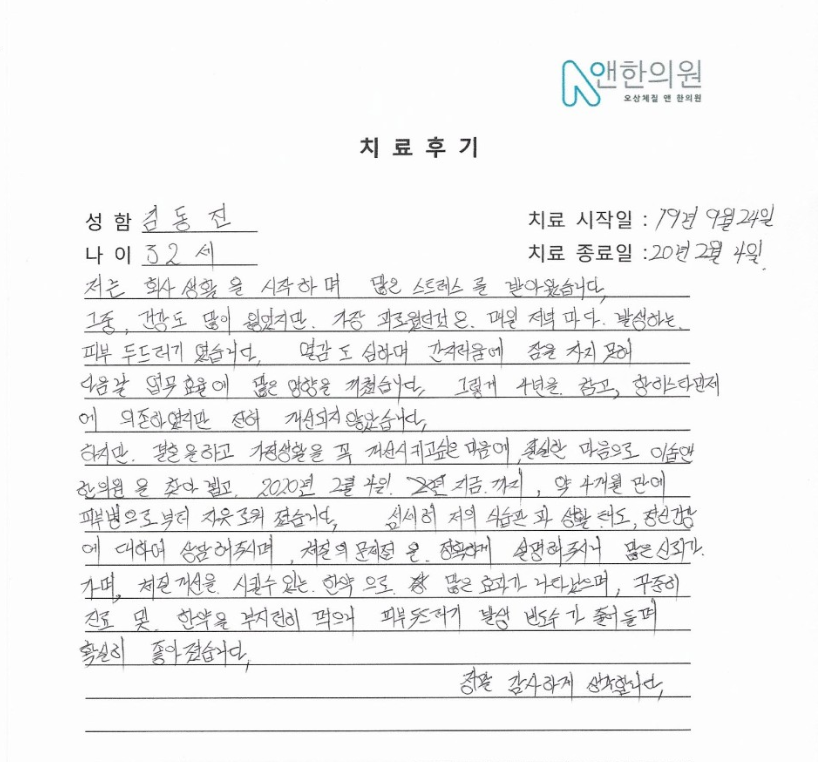 앤한의원
오상체질 앤 한의원
치료후기
성함 김동진
치료 시작일 : 19년 9월 24일
나이 32세
치료 종료일 : 20년 2월 4일.
저는 회사 생활을 시작하며 많은 스트레스를 받아왔습니다,
그중, 건강도 많이 잃었지만. 가장 괴로웠던것은. 매일 저녁 마다. 발생하는.
피부 두드러기 였습니다, 열감도 심하며 간지러움에 잠을 자지 못해
다음날 업무 효율에 많은 영향을 끼쳤습니다, 그렇게 4년을 참고, 항히스타민제
에 의존하였지만 전혀 개선되지 않았습니다,
하지만. 결혼을하고 가정생활을 꼭 개선시키고싶은 마음에, 절실한 마음으로 이곳앤
한의원을 찾아 뵙고. 2020년 2월 4일. 지금.까지, 약 4개월 만에
피부병으로부터 자유로워 졌습니다, 섬세히 저의 식습관과 생활 태도, 정신건강
에 대하여 상담해주시며, 체질의 문제점을 정확하게 설명해주시니 많은 신뢰가.
가며, 체질 개선을 시킬수 있는. 한약으로 많은 효과가 나타났으며, 꾸준히
진료 및 한약을 부지런히 먹으니 피부두드러기 발생 빈도수가 줄어들며
확실히 좋아졌습니다,
정말 감사하게 생각합니다,